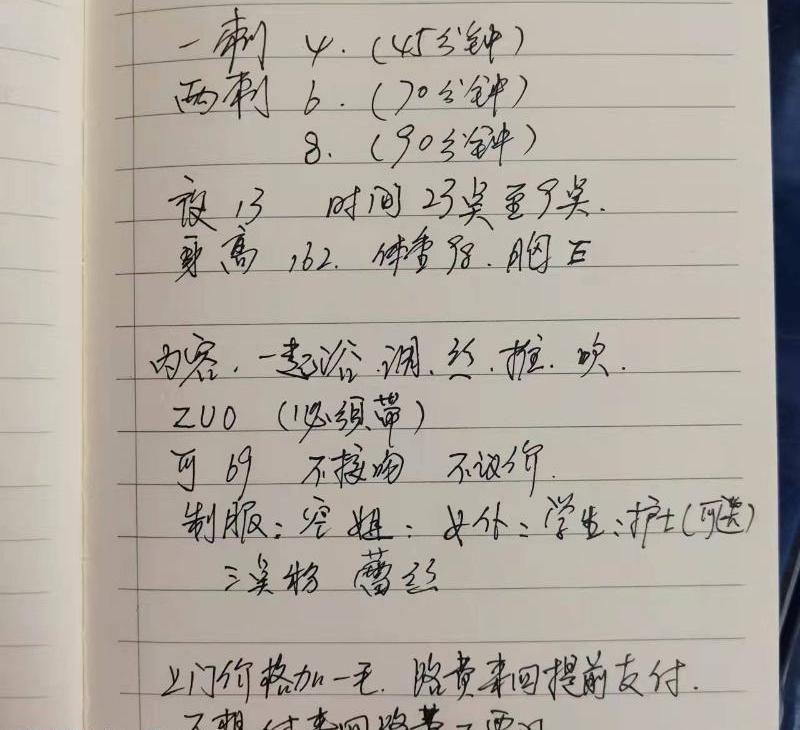 一刺 4.（45分钟）
两刺 6.（70分钟）
8.（90分钟）
夜13 时间23点至9点.
身高162. 体重98. 胸B
内容. 一起浴.调.丝.推.吹.
ZUO（必须带）
可69 不接吻 不议价.
制服：空姐：女仆：学生：护士（可选）
三点粉 蕾丝
上门价格加一毛. 路费来回提前支付.
不想付来回路费